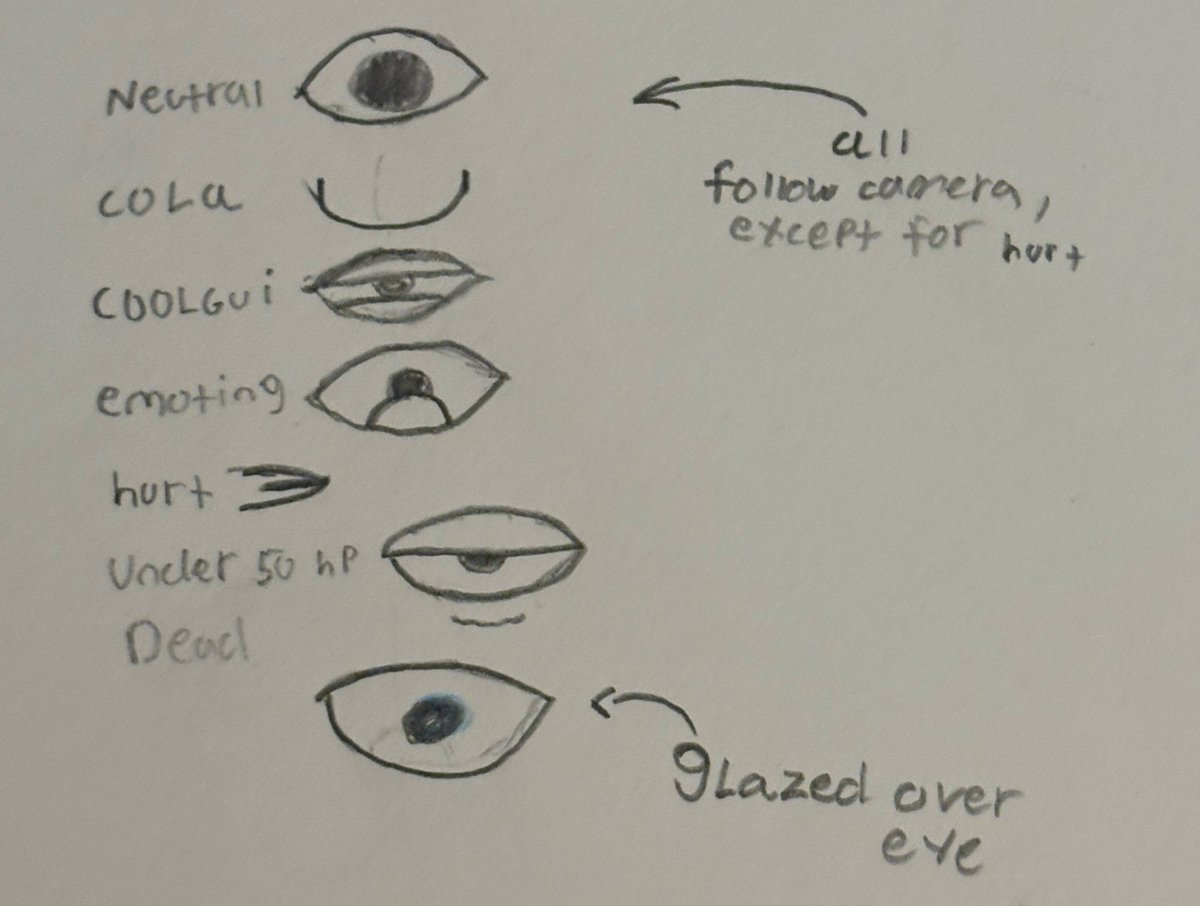 Neutral
all
follow camera,
except for hurt
coLa
COOLGui
emoting
hurt
Under 50 hP
Dead
gLazed over
eye